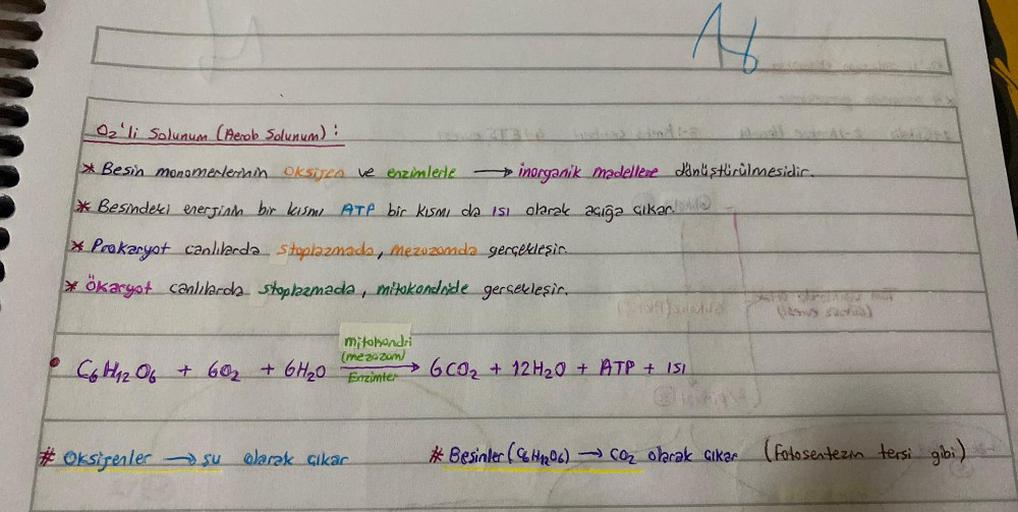 O₂'li Solunum (Aerob Solunum) :
* Besin monomerlerinin oksijen ve enzimlerle → inorganik madellere dönüştürülmesidir.
* Besindeki enerjinin bir kısmı ATP bir kısmı da ısı olarak açığa çıkar.
* Prokaryot canlılarda stoplazmada, mezozomda gerçekleşir.
* Ökaryot canlılarda stoplazmada, mitokondride gerçekleşir.
mitokondri
(mezozom)
• C₆H₁₂O₆ + 6O₂ + 6H₂O → 6CO₂ + 12H₂O + ATP + ISI
Enzimler
# Oksijenler → su olarak çıkar # Besinler (C₆H₁₂O₆) → CO₂ olarak çıkar (fotosentezin tersi gibi)